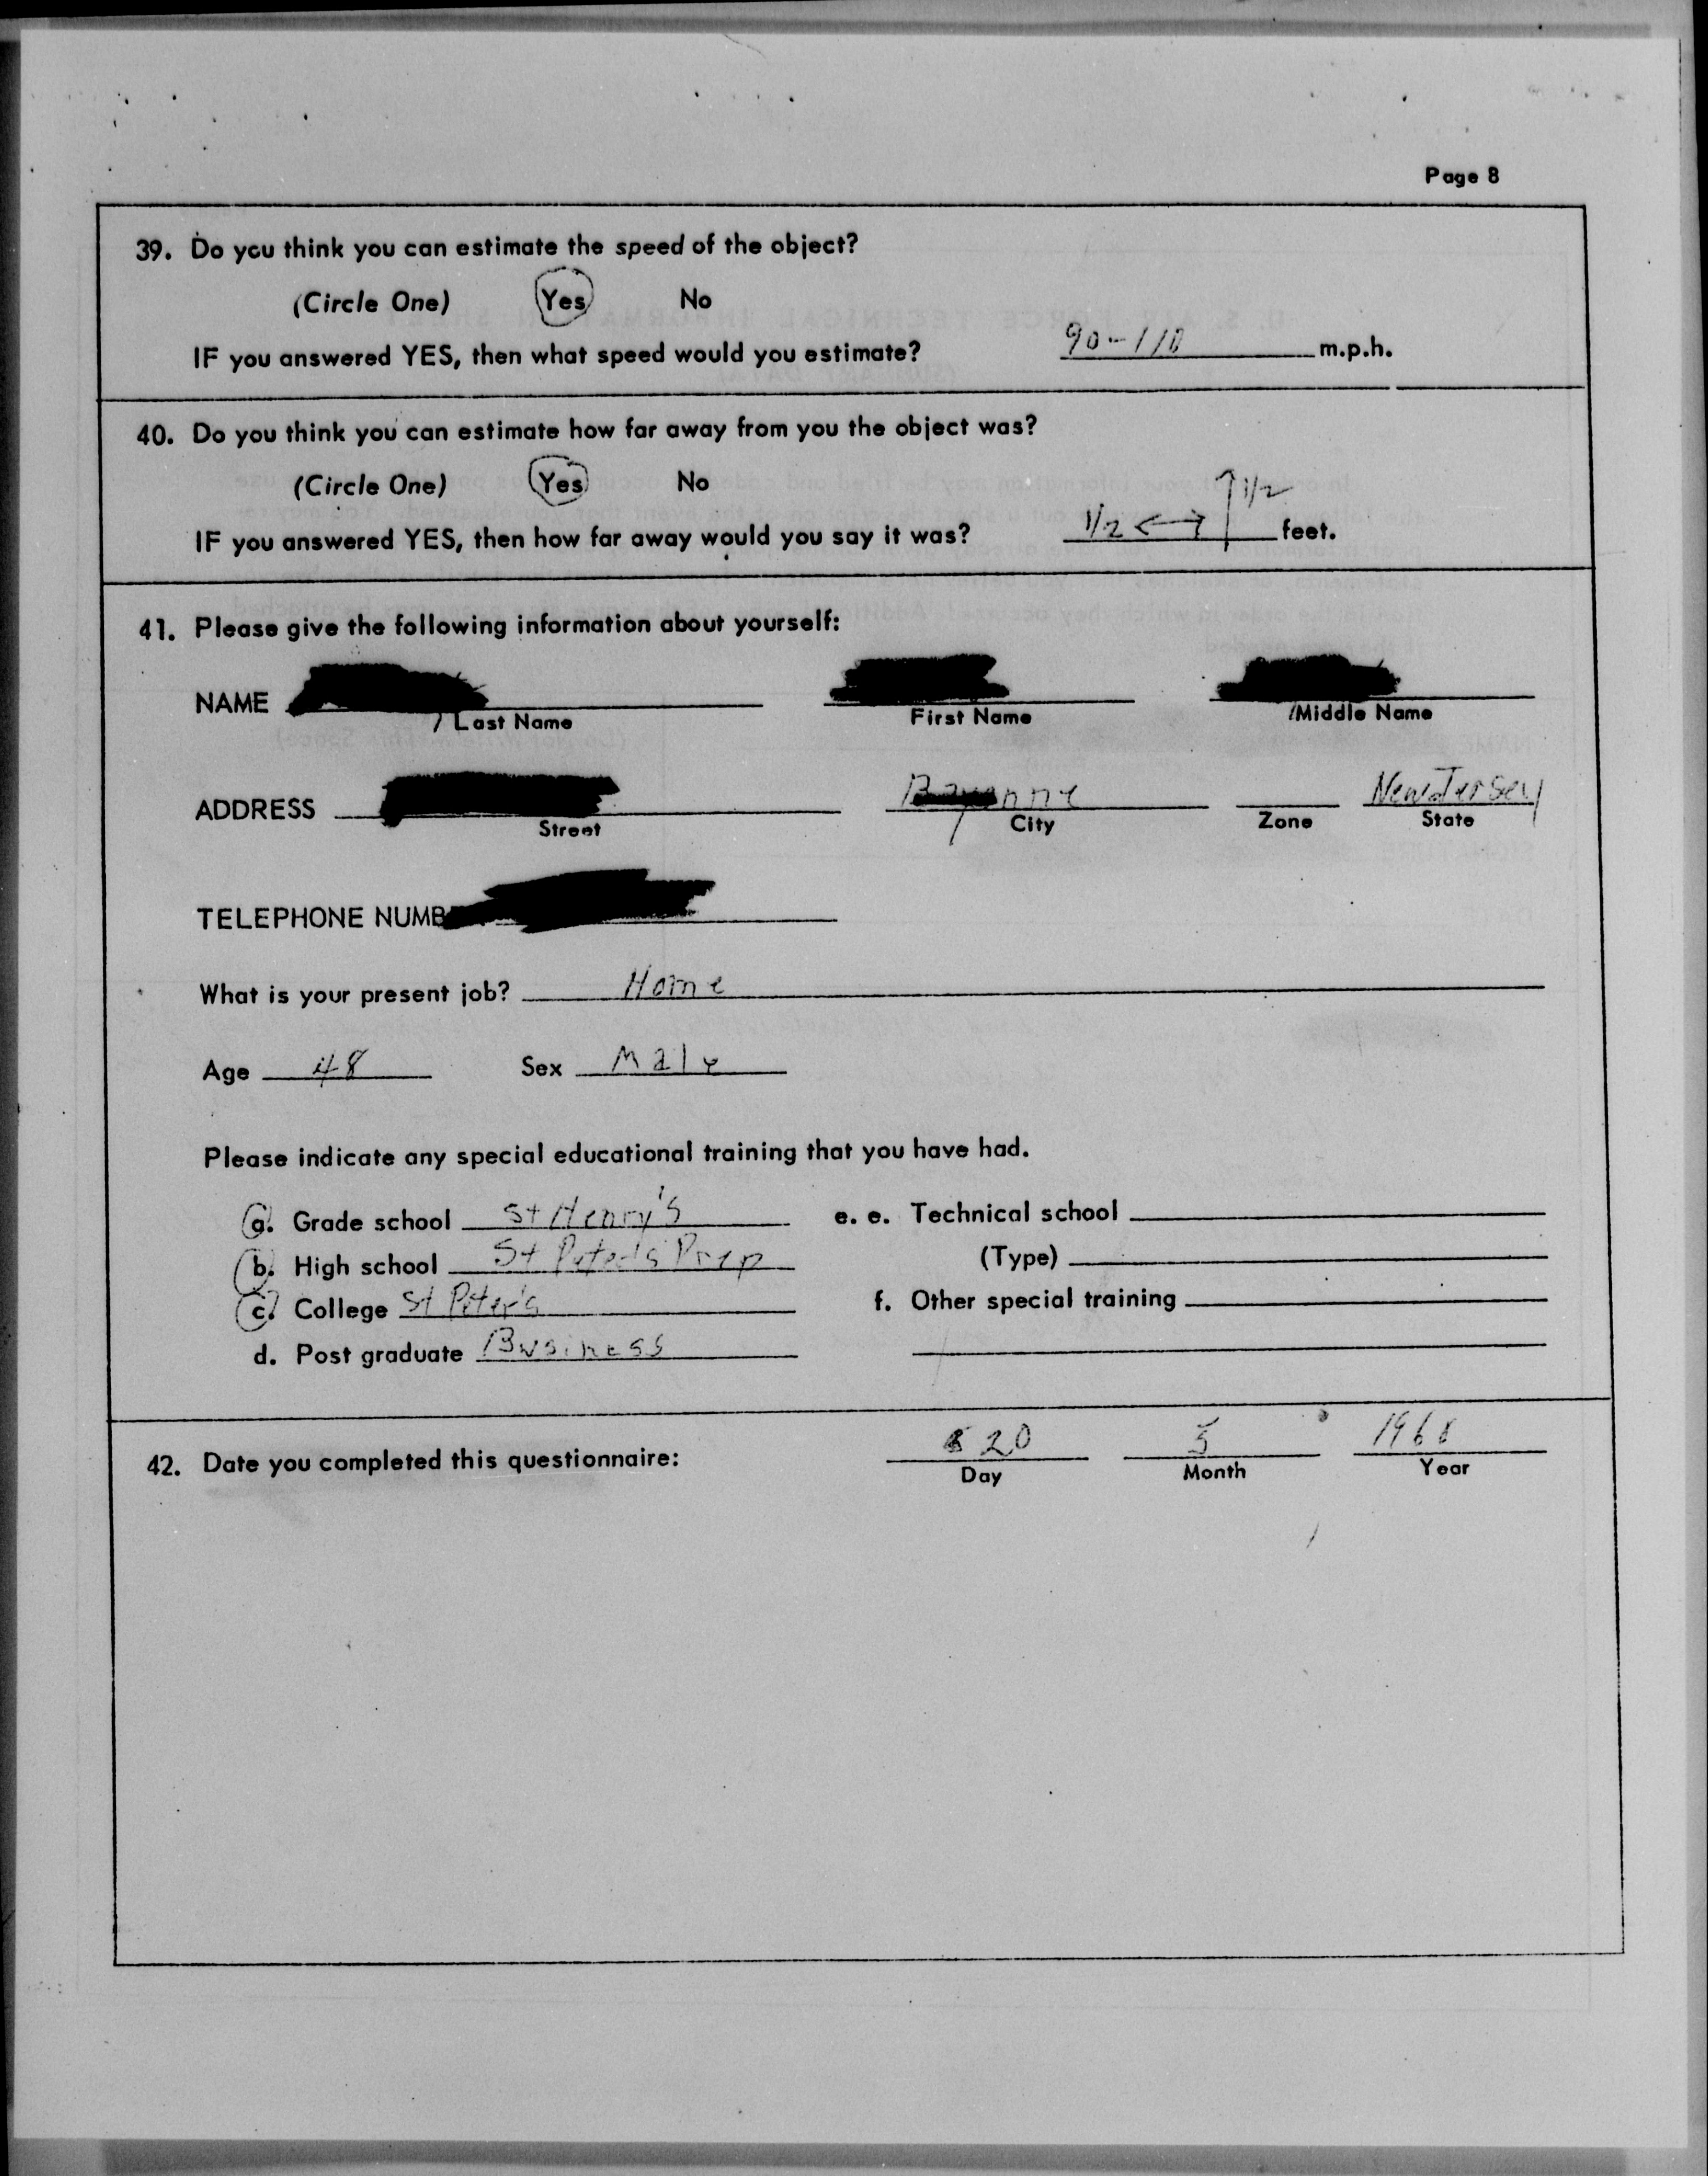 Page 8
39. Do you think you can estimate the speed of the object?
(Circle One) Yes No
IF you answered YES, then what speed would you estimate? 90-110 m.p.h.
40. Do you think you can estimate how far away from you the object was?
(Circle One) Yes No
IF you answered YES, then how far away would you say it was? 1/2 ↔ ↑ 1/2 feet.
41. Please give the following information about yourself:
NAME
Last Name First Name Middle Name
ADDRESS Bayonne New Jersey
Street City Zone State
TELEPHONE NUMB
What is your present job? Home
Age 48 Sex Male
Please indicate any special educational training that you have had.
a. Grade school St Henry's e. e. Technical school
b. High school St Peter's Prep (Type)
c. College St Peter's f. Other special training
d. Post graduate Business
42. Date you completed this questionnaire: 20 5
Day Month Year